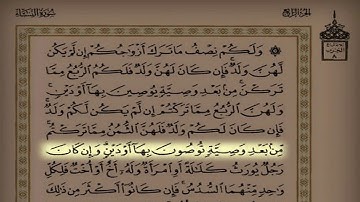 سُورَةُ النِّسَاءِ
الجُزءُ الرَّابِعُ
وَلَكُمْ نِصْفُ مَا تَرَكَ أَزْوَاجُكُمْ إِن لَّمْ يَكُن
لَّهُنَّ وَلَدٌ فَإِن كَانَ لَهُنَّ وَلَدٌ فَلَكُمُ الرُّبُعُ مِمَّا
تَرَكْنَ مِنۢ بَعْدِ وَصِيَّةٍ يُوصِينَ بِهَا أَوْ دَيْنٍ
وَلَهُنَّ الرُّبُعُ مِمَّا تَرَكْتُمْ إِن لَّمْ يَكُن لَّكُمْ وَلَدٌ
فَإِن كَانَ لَكُمْ وَلَدٌ فَلَهُنَّ الثُّمُنُ مِمَّا تَرَكْتُم
مِّنۢ بَعْدِ وَصِيَّةٍ تُوصُونَ بِهَا أَوْ دَيْنٍ وَإِن كَانَ
رَجُلٌ يُورَثُ كَلَالَةً أَوِ امْرَأَةٌ وَلَهُ أَخٌ أَوْ أُخْتٌ فَلِكُلِّ
وَاحِدٍ مِّنْهُمَا السُّدُسُ فَإِن كَانُوا أَكْثَرَ مِن ذَٰلِكَ